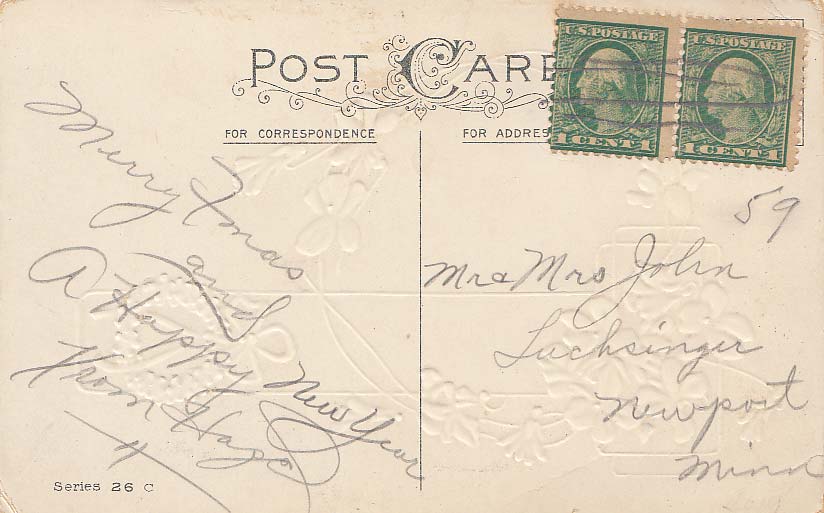 POST CARD
U.S. POSTAGE
1 CENT 1
U.S. POSTAGE
1 CENT 1
FOR CORRESPONDENCE
FOR ADDRESS
Merry Xmas
and
A Happy New Year
From
59
Mr & Mrs John
Luchsinger
Newport
Minn
Series 26 C